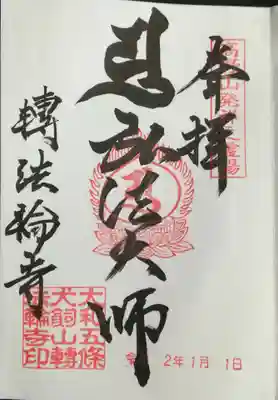 奉拝
弘法大師
轉法輪寺
大和五條
犬飼山轉
法輪寺印
令 2年1月1日